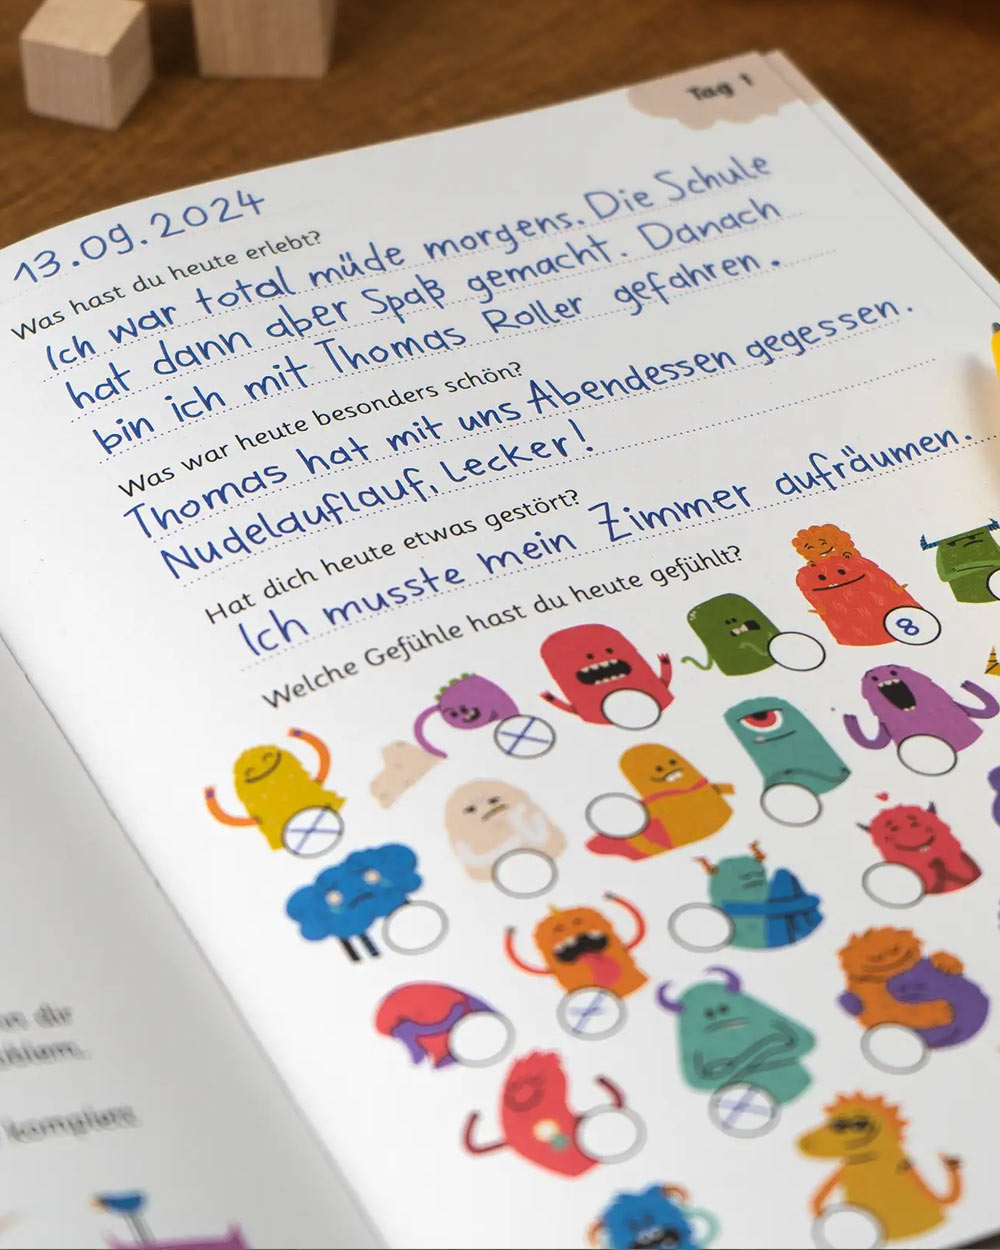 Tag 1
13.09.2024
Was hast du heute erlebt?
Ich war total müde morgens. Die Schule
hat dann aber Spaß gemacht. Danach
bin ich mit Thomas Roller gefahren.
Was war heute besonders schön?
Thomas hat mit uns Abendessen gegessen.
Nudelauflauf, Lecker!
Hat dich heute etwas gestört?
Ich musste mein Zimmer aufräumen.
Welche Gefühle hast du heute gefühlt?
8
dir